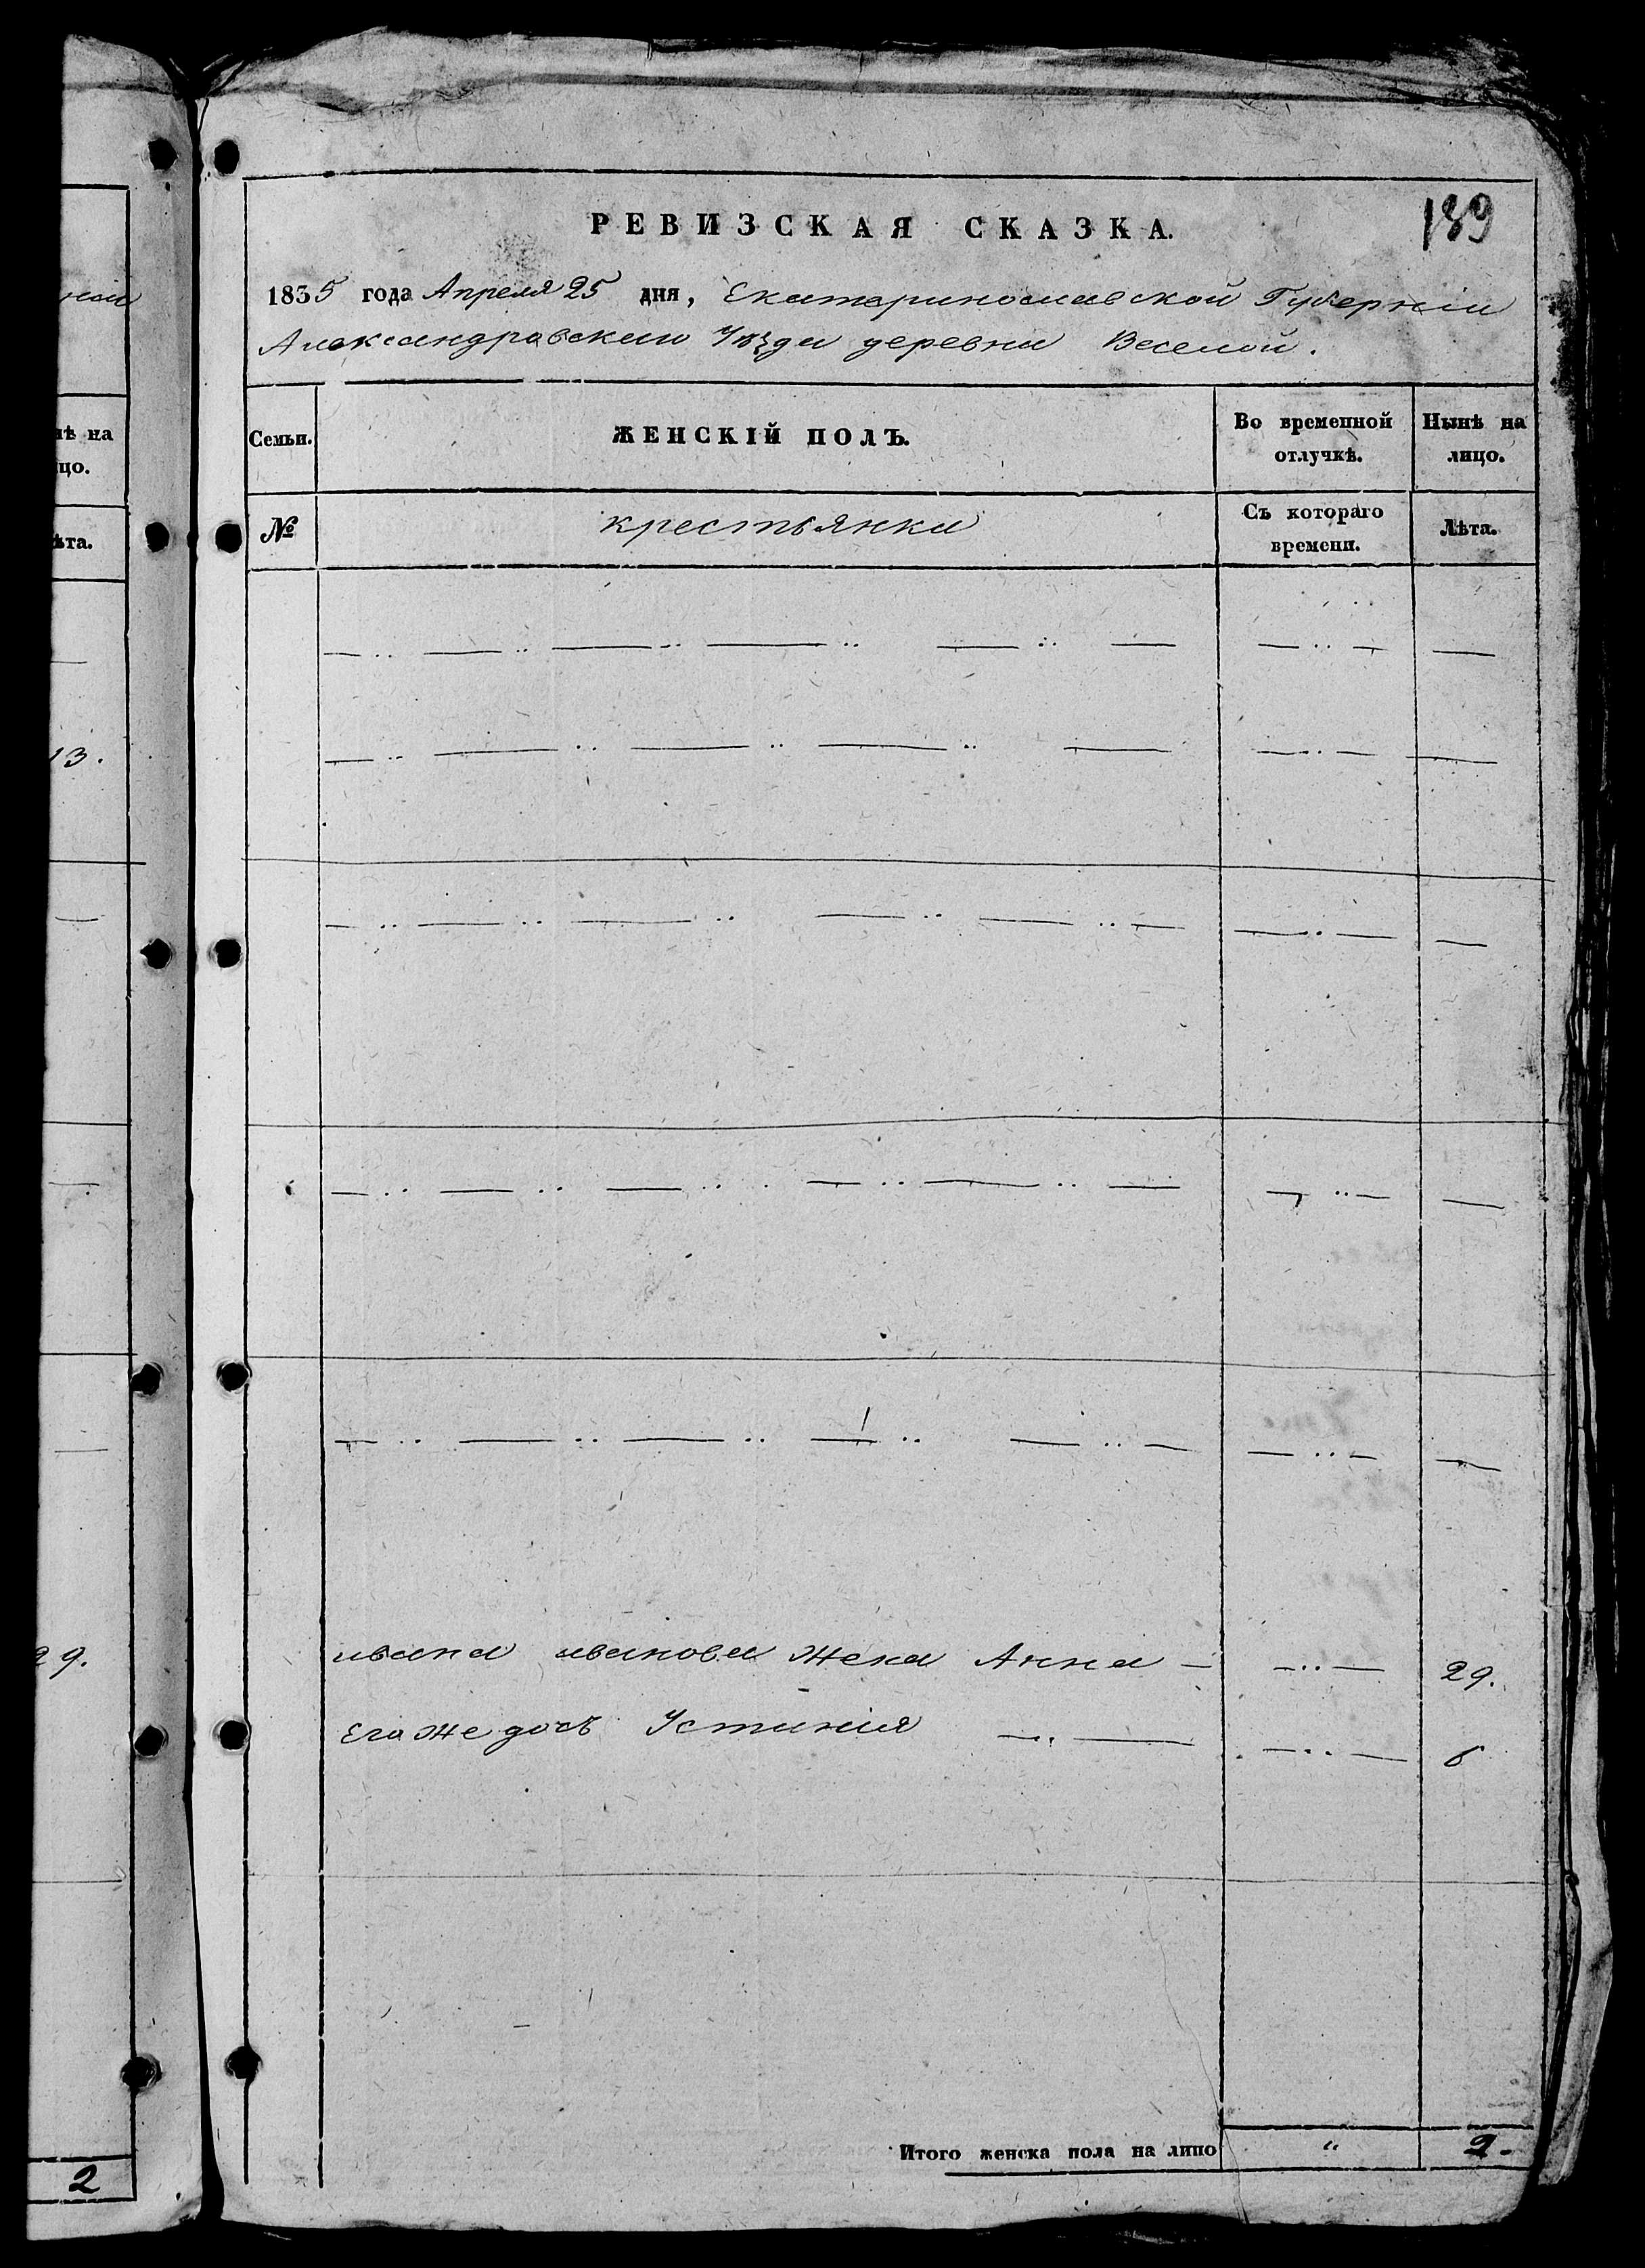 ной
нѣ на
цо.
ѣта.
13.
29.
2
РЕВИЗСКАЯ СКАЗКА.
189
1835 года Апреля 25 дня, Екатеринославской Губерніи
Александровскаго Уѣзда деревни Веселой.
Семьи.
ЖЕНСКІЙ ПОЛЪ.
Во временной отлучкѣ.
Нынѣ на лицо.
№
крестьянки
Съ котораго времени.
Лѣта.
ивана иванова жена Анна — —..— 29.
Его же дочь Устинія —..— —..— 6
Итого женска пола на лицо " 2.